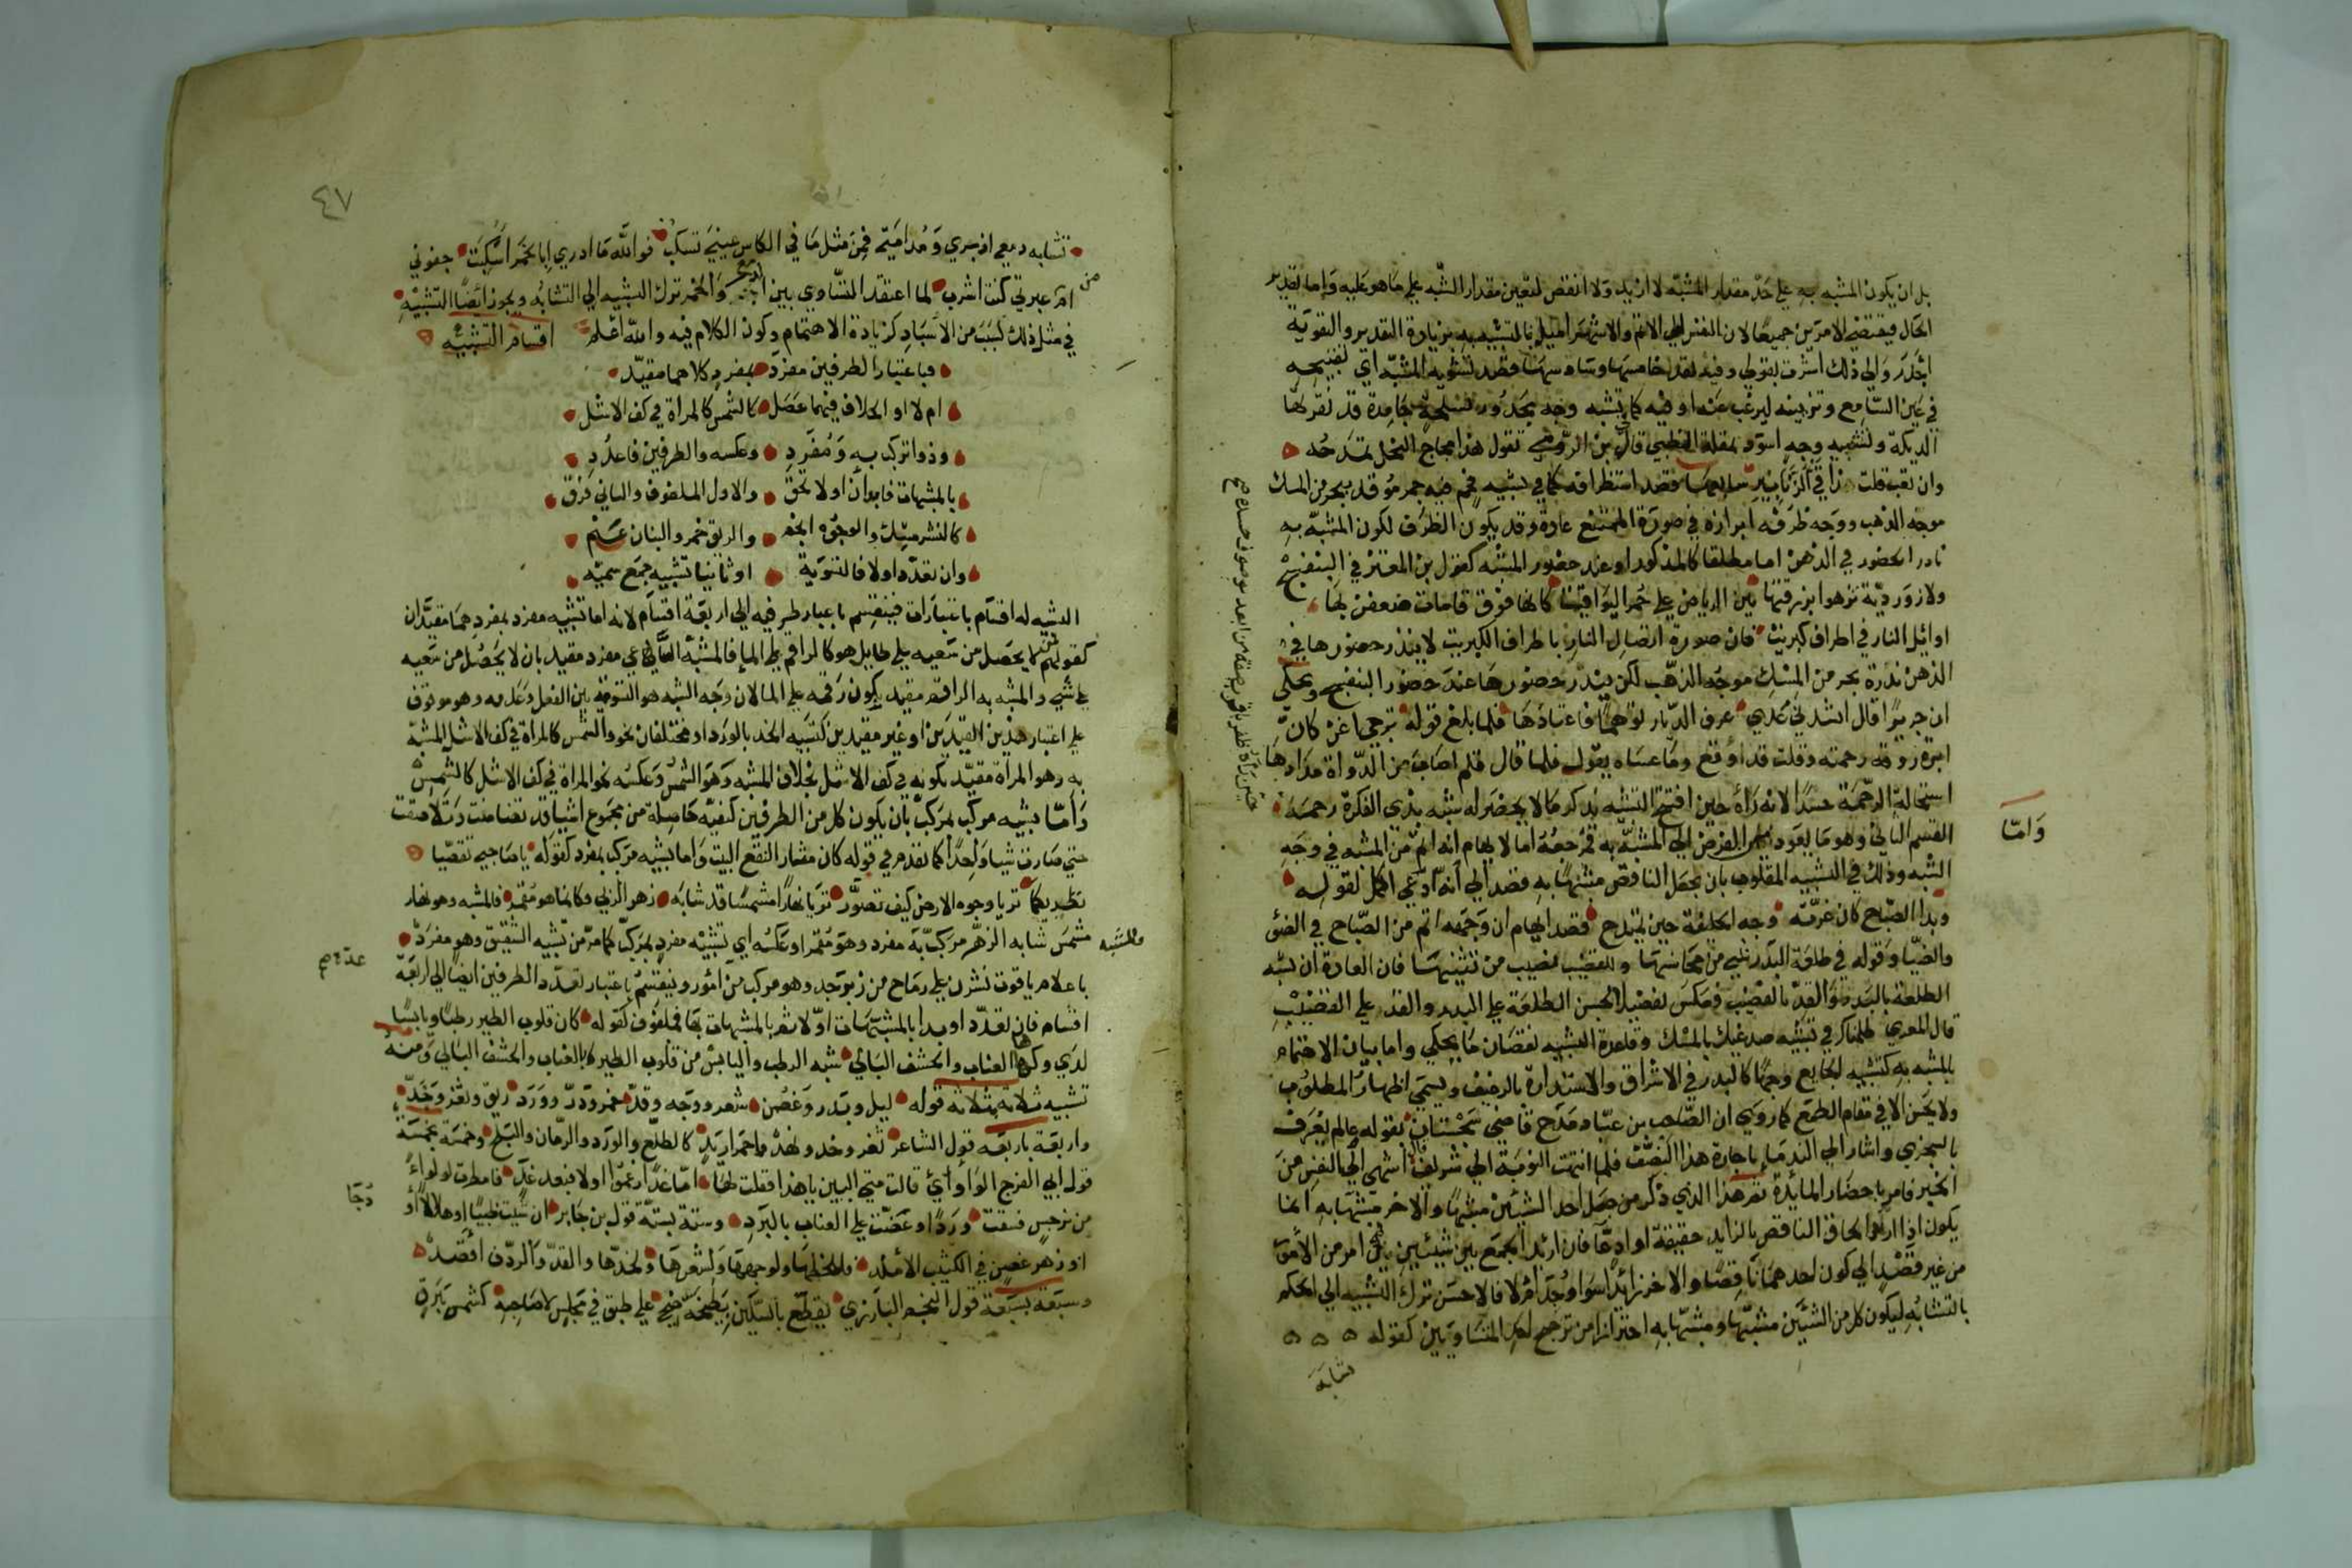 بل ان يكون المشبه به على حد مقدار المشبه لا ازيد ولا انقص لتعين مقدار الشبه على ما هو عليه واما تقدير
الحال فيقتضى الامرين جميعا لان النفس الى الاتم والاشهر اميل بالتشبيه به بزيادة التقدير والتقوية
اجدر والى ذلك اشرت بقولى وفيه لقد تشويه المشبه اى تقبيحه
فى عين السامع وتزيينه ليرغب عنه او فيه كما تشبه وجه مجدور بسلحة جامدة قد نقرتها
الديكة ولتشبيه وجه اسود بمقلة الظبى قال بن الرومى تقول هذا مجاج النحل تمدحه
وان تعب قلت قى الزنابير فقصد استظرافه كما فى تشبيه فحم فيه جمر موقد ببحر من المسك
موجه الذهب ووجه ظرفه ابرازه فى صورة الممتنع عادة وقد يكون الظرف لكون المشبه به
نادر الحضور فى الذهن اما مطلقا كالمذكور او عند حضور المشبه كقول بن المعتز فى البنفسج
ولازوردية تزهوا بزرقتها بين الرياض على حمر اليواقيت كانها فوق قامات ضعفن بها
اوائل النار فى اطراف كبريت فان صورة اتصال النار باطراف الكبريت لا يندر حضورها فى
الذهن ندرة بحر من المسك موجه الذهب لكن يندر حضورها عند حضور البنفسج ويحكى
ان جريرا قال انشدنى عدى عرف الديار توهما فاعتادها فلما بلغ قوله تزجى اغن كان
ابرة روقه رحمته وقلت قد اوقع وما عساه يقول فلما قال قلم اصاب من الدواة مدادها
استحالت الرحمة حسدا لانه رآه حين افتتح التشبيه بذكر ما لا يحضر له شبه بذى الفكرة رحمه
القسم الثانى وهو ما يعود الغرض الى المشبه به فمرجعه اما لايهام انه اتم من المشبه فى وجه
الشبه وذلك فى التشبيه المقلوب بان يجعل الناقص مشبها به قصد الى انه ادعى اكمل لقوله
وبدا الصباح كان غرته وجه الخليفة حين يمتدح فقصد ايهام ان وجهه اتم من الصباح فى الضئ
والضيا وقوله فى طلعة البدر شئ من محاسنها وللقضيب نصيب من تثنيها فان العادة ان يشبه
الطلعة بالبدر والقد بالقضيب فعكس تفضيلا لحسن الطلعة على البدر والقد على القضيب
قال المعرى ظلمناك فى تشبيه صدغيك بالمسك وقاعدة التشبيه نقصان ما يحكى واما بيان الاهتمام
بالمشبه به كتشبيه الجايع وجها كالبدر فى الاشراق والاستدارة بالرغيف ويسمى اظهار المطلوب
ولا يحسن الا فى مقام الطمع كما روى ان الصاحب بن عباد مدح قاضى سجستان بقوله عالم يعرف
بالسجزى واشار الى الندما باجازة هذا النصف فلما انتهت النوبة الى شريف قال اشهى الى النفس من
الخبز فامر باحضار المائدة ثم هذا الذى ذكر من جعل احد الشيئين مشبها والاخر مشبها به انما
يكون اذا اريد الحاق الناقص بالزايد حقيقة او ادعا فان اريد الجمع بين شيئين فى امر من الامور
من غير قصد الى كون احدهما ناقصا والاخر زائدا سوا وجدا ام لا فالاحسن ترك التشبيه الى الحكم
بالتشابه ليكون كل من الشيئين مشبها ومشبها به احترازا من ترجيح احد المتساويين كقوله
تشابه
واما
٤٧
تشابه دمعى اذ جرى ومدامتى فمن مثل ما فى الكاس عينى تسكب فوالله ما ادرى ابالخمر اسكبت جفونى
ام من عبرتى كنت اشرب لما اعتقد التساوى بين الدمع والخمر ترك التشبيه الى التشابه ويجوز ايضا التشبيه
فى مثل ذلك لسبب من الاسباب كزيادة الاهتمام وكون الكلام فيه والله اعلم اقسام التشبيه
فباعتبار الطرفين مفرد بمفرد كلاهما مقيد
ام لا او الخلاف فيهما حصل كالشمس كالمرأة فى كف الاشل
وذوا تركب به ومفرد وعكسه والطرفين فاعدد
بالمشبهات فابدأن اولا تحق والاول الملفوف والثانى فرق
كالنشر مسك والوجوه انجم والريق خمر والبنان عنم
وان تعدد اولا فالتسوية او ثانيا تشبيه جمع سميه
التشبيه له اقسام باعتبارات فينقسم باعتبار طرفيه الى اربعة اقسام لانه اما تشبيه مفرد بمفرد هما مقيدان
كقولهم لمن لا يحصل من سعيه على طايل هو كالراقم على الما فالمشبه الساعى مفرد مقيد بان لا يحصل من سعيه
على شئ والمشبه به الراقم مقيد بكون رقمه على الما لان وجه الشبه هو التسوية بين الفعل وعدمه وهو موقوف
على اعتبار هذين القيدين او غير مقيدين كتشبيه الخد بالورد او مختلفان نحو والشمس كالمرأة فى كف الاشل المشبه
به وهو المرأة مقيد بكونه فى كف الاشل بخلاف المشبه وهو الشمس وعكسه نحو المراة فى كف الاشل كالشمس
واما تشبيه مركب بمركب بان يكون كل من الطرفين كيفية حاصلة من مجموع اشيا قد تضامنت وتلاصقت
حتى صارت شيا واحدا كما تقدم فى قوله كان مثار النقع البيت واما تشبيه مركب بمفرد كقوله يا صاحبى تقصيا
نظريكما تريا وجوه الارض كيف تصور تريا نهارا مشمسا قد شابه زهر الربى وكانما هو مقمر فالمشبه وهو نهار
مشمس شابه الزهر مركب والمشبه به مفرد وهو مقمر او عكسه اى تشبيه مفرد بمركب كما مر من تشبيه الشقيق وهو مفرد
باعلام ياقوت نشرن على رماح من زبرجد وهو مركب من عدة امور وينقسم باعتبار تعدد الطرفين ايضا الى اربعة
اقسام فان تعدد او بدا بالمشبهات اولا ثم بالمشبهات بها فملفوف كقوله كان قلوب الطير رطبا ويابسا
لدى وكرها العناب والحشف البالى شبه الرطب واليابس من قلوب الطير بالعناب والحشف البالى ومنه
تشبيه ثلاثه بثلاثه قوله ليل وبدر وغصن شعر ووجه وقد خمر ودر وورد ريق وثغر وخد
واربعة باربعه قول الشاعر ثغر وخد ونهد واحمرار يد كالطلع والورد والرمان والبلح وخمسة بخمسة
قول ابى الفرج الواوائ قالت متى البين يا هذا فقلت لها اما غدا زعموا او لا فبعد غد فامطرت لولوا
من نرجس فسقت وردا وعضت على العناب بالبرد وستة بستة قول بن جابر ان شئت ظبيا او هلالا او دجا
او زهر غصن فى الكثيب الاملد فللحظها ولوجهها ولشعرها ولخدها والقد والردف اقصد
وسبعة بسبعة قول النجم البارزى يقطع بالسكين بطيخة ضحى على طبق فى مجلس لاصاحبه كشمس ببرق